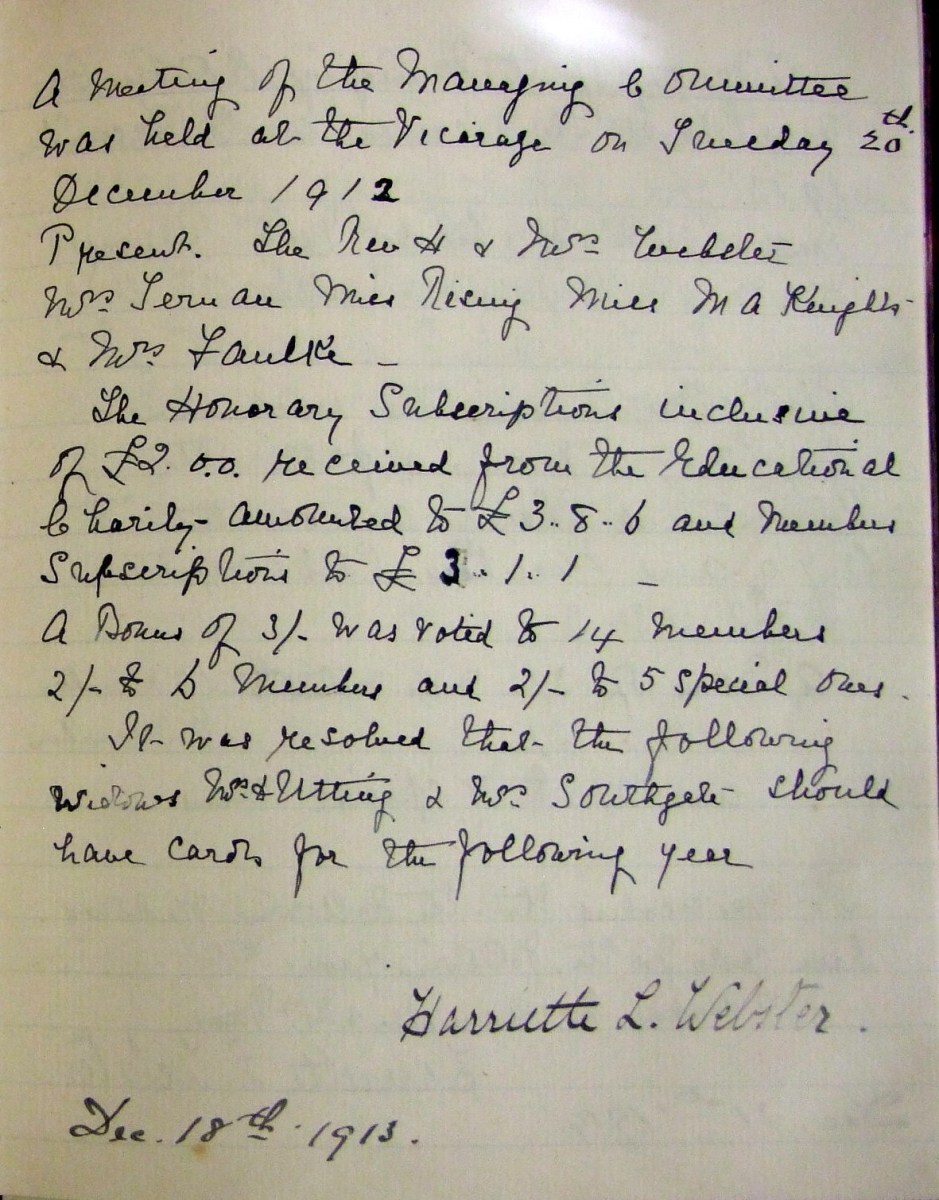 A Meeting of the Managing Committee
was held at the Vicarage on Tuesday 20th
December 1912
Present. The Rev H & Mrs Webster
Mrs Miss Rising Miss M A Knights
& Mrs Faulke -
The Honorary Subscriptions inclusive
of £2.0.0. received from the Educational
Charity amounted to £3..8..6 and Members
Subscriptions to £3..1..1 -
A Bonus of 3/- was voted to 14 members
2/- to 6 Members and 2/- to 5 special ones.
It was resolved that the following
widows Mrs H Utting & Mrs Southgate should
have cards for the following year
Harriette L. Webster.
Dec. 18th. 1913.